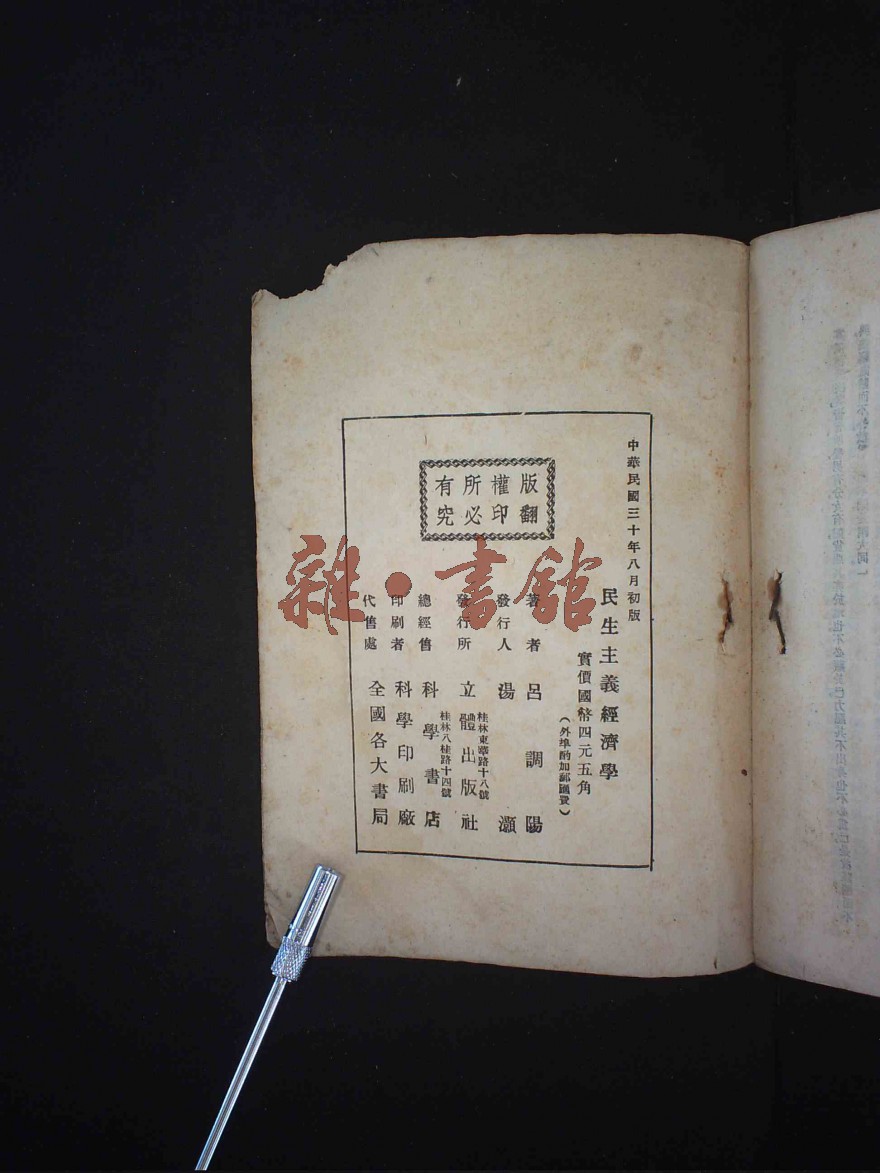 中華民國三十年八月初版
民生主義經濟學
實價國幣四元五角
（外埠酌加郵匯費）
版權所有
翻印必究
著者 呂調陽
發行人 湯灝
發行所 立體出版社
桂林東華路十八號
總經售 科學書店
桂林八桂路十四號
印刷者 科學印刷廠
代售處 全國各大書局
雜·書館